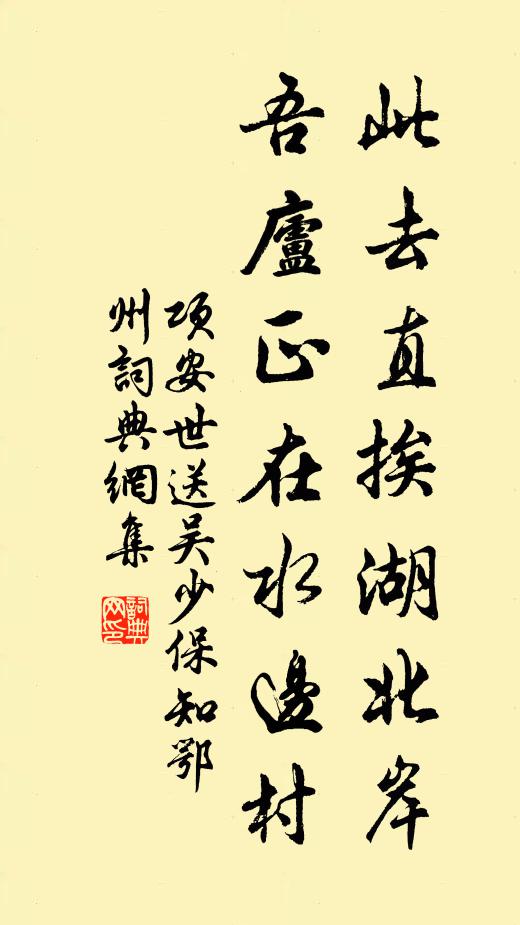 此去直挨湖北岸
吾廬正在水邊村
項安世送吴少保知鄂
州詞典網集
詞典
网印